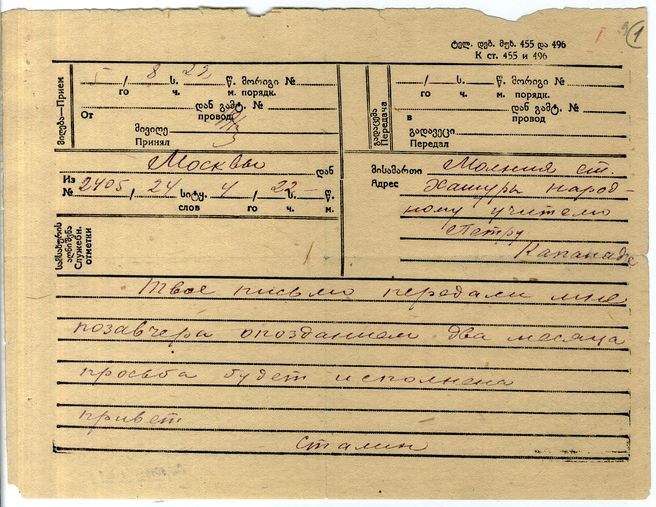 ტელ. დებ. მუხ. 455 და 496
К ст. 455 и 496
1
5 / 8 ს. 22 წ. მორიგი №
го ч. м. порядк.
დან გამტ. №
От провод.
მივიღე
Принял
მიღება—Прием
/ ს. წ. მორიგი №
го ч. м. порядк.
დან გამტ. №
в провод
გადავეცი
Передал
გადაცემა
Передача
Из Москвы დან
№ 2405 / 24 სიტყ. 4 / 22 ს. წ.
слов го ч. м.
მისამართი Молния ст.
Адрес Хашуры народ-
ному учителю
Петру
Капанадзе
სამსახურის აღნიშვნა
Служебн. отметки
Твое письмо передали мне
позавчера опозданием два месяца
просьба будет исполнена
привет
Сталин